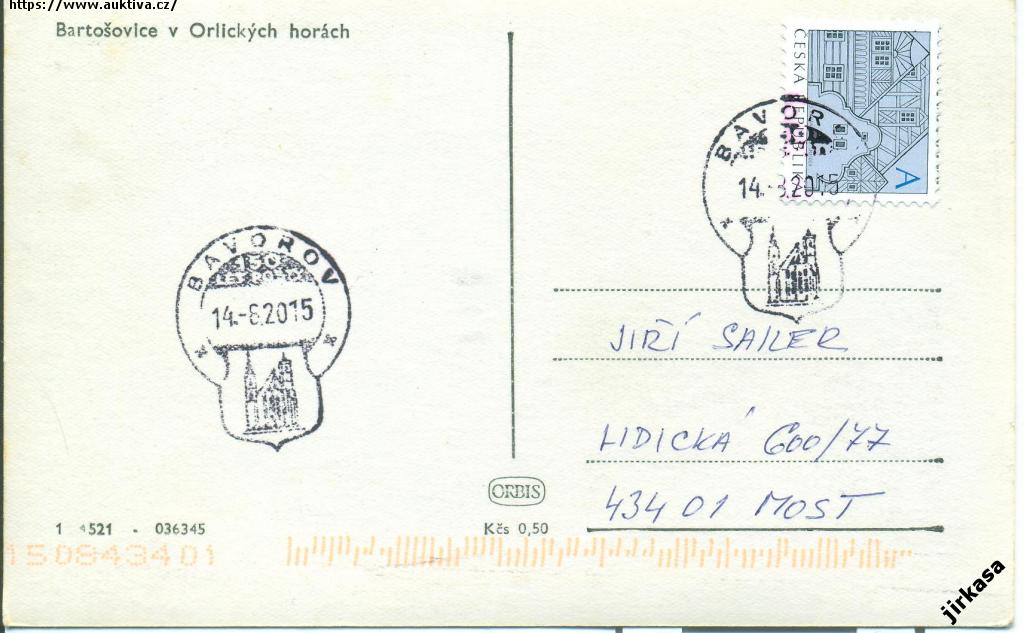 https://www.auktiva.cz/
Bartošovice v Orlických horách
ČESKÁ REPUBLIKA
A
BAVOROV
14.-8.2015
BAVOROV
150
14.-8.2015
JIŘÍ SAILER
LIDICKÁ 600/77
434 01 MOST
ORBIS
1 4521 - 036345
Kčs 0,50
150843401
jirkasa